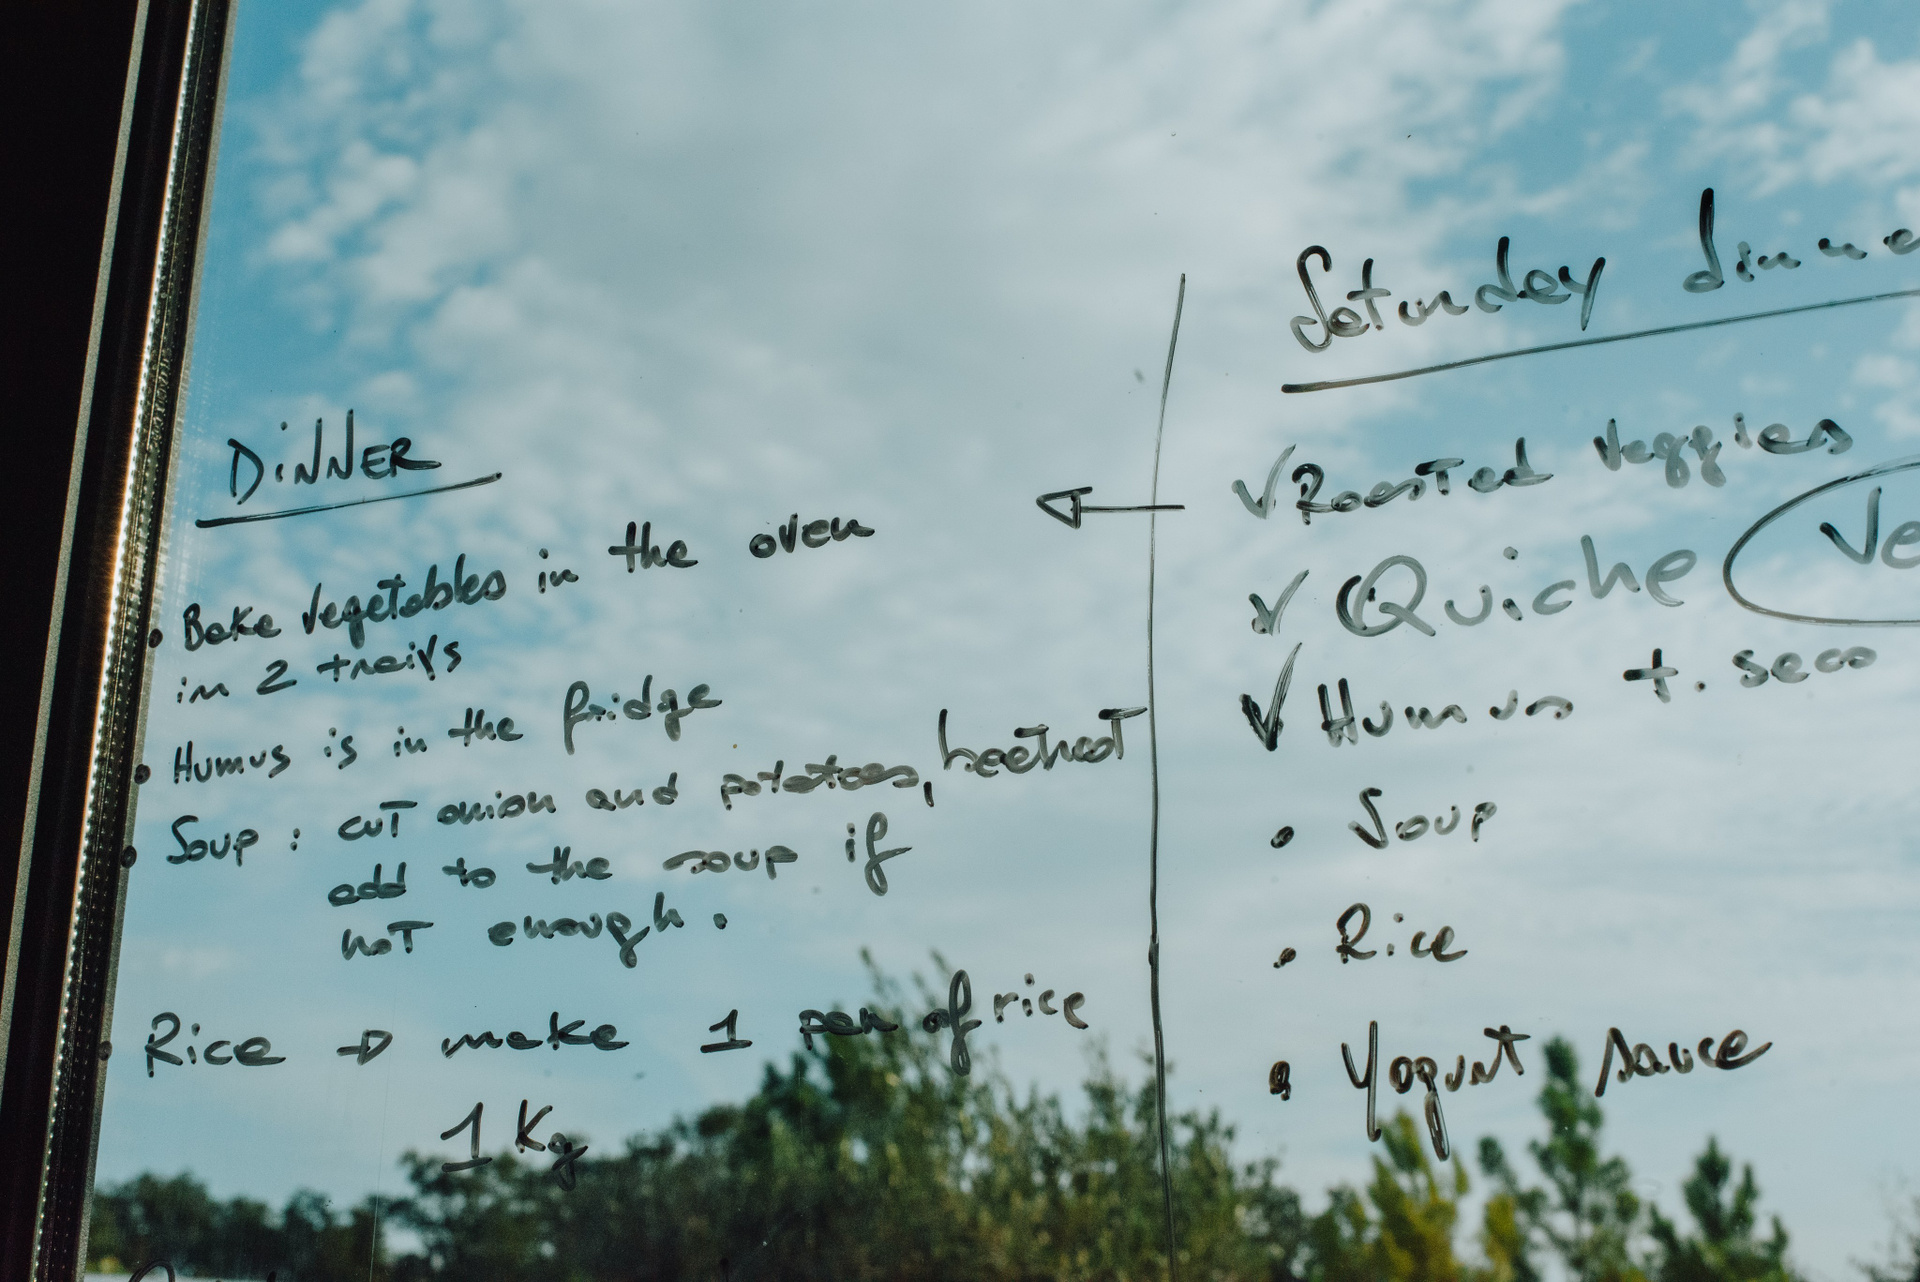 DiNNER
• Bake vegetables in the oven
in 2 traiys
• Humus is in the fridge
• Soup : cut onion and potatoes, beetroot
add to the soup if
not enough.
• Rice → make 1 pan of rice
1 Kg
Saturday dinne
✓ Roasted veggies
✓ Quiche Ve
✓ Humus t. seco
• Soup
• Rice
• Yogurt sauce